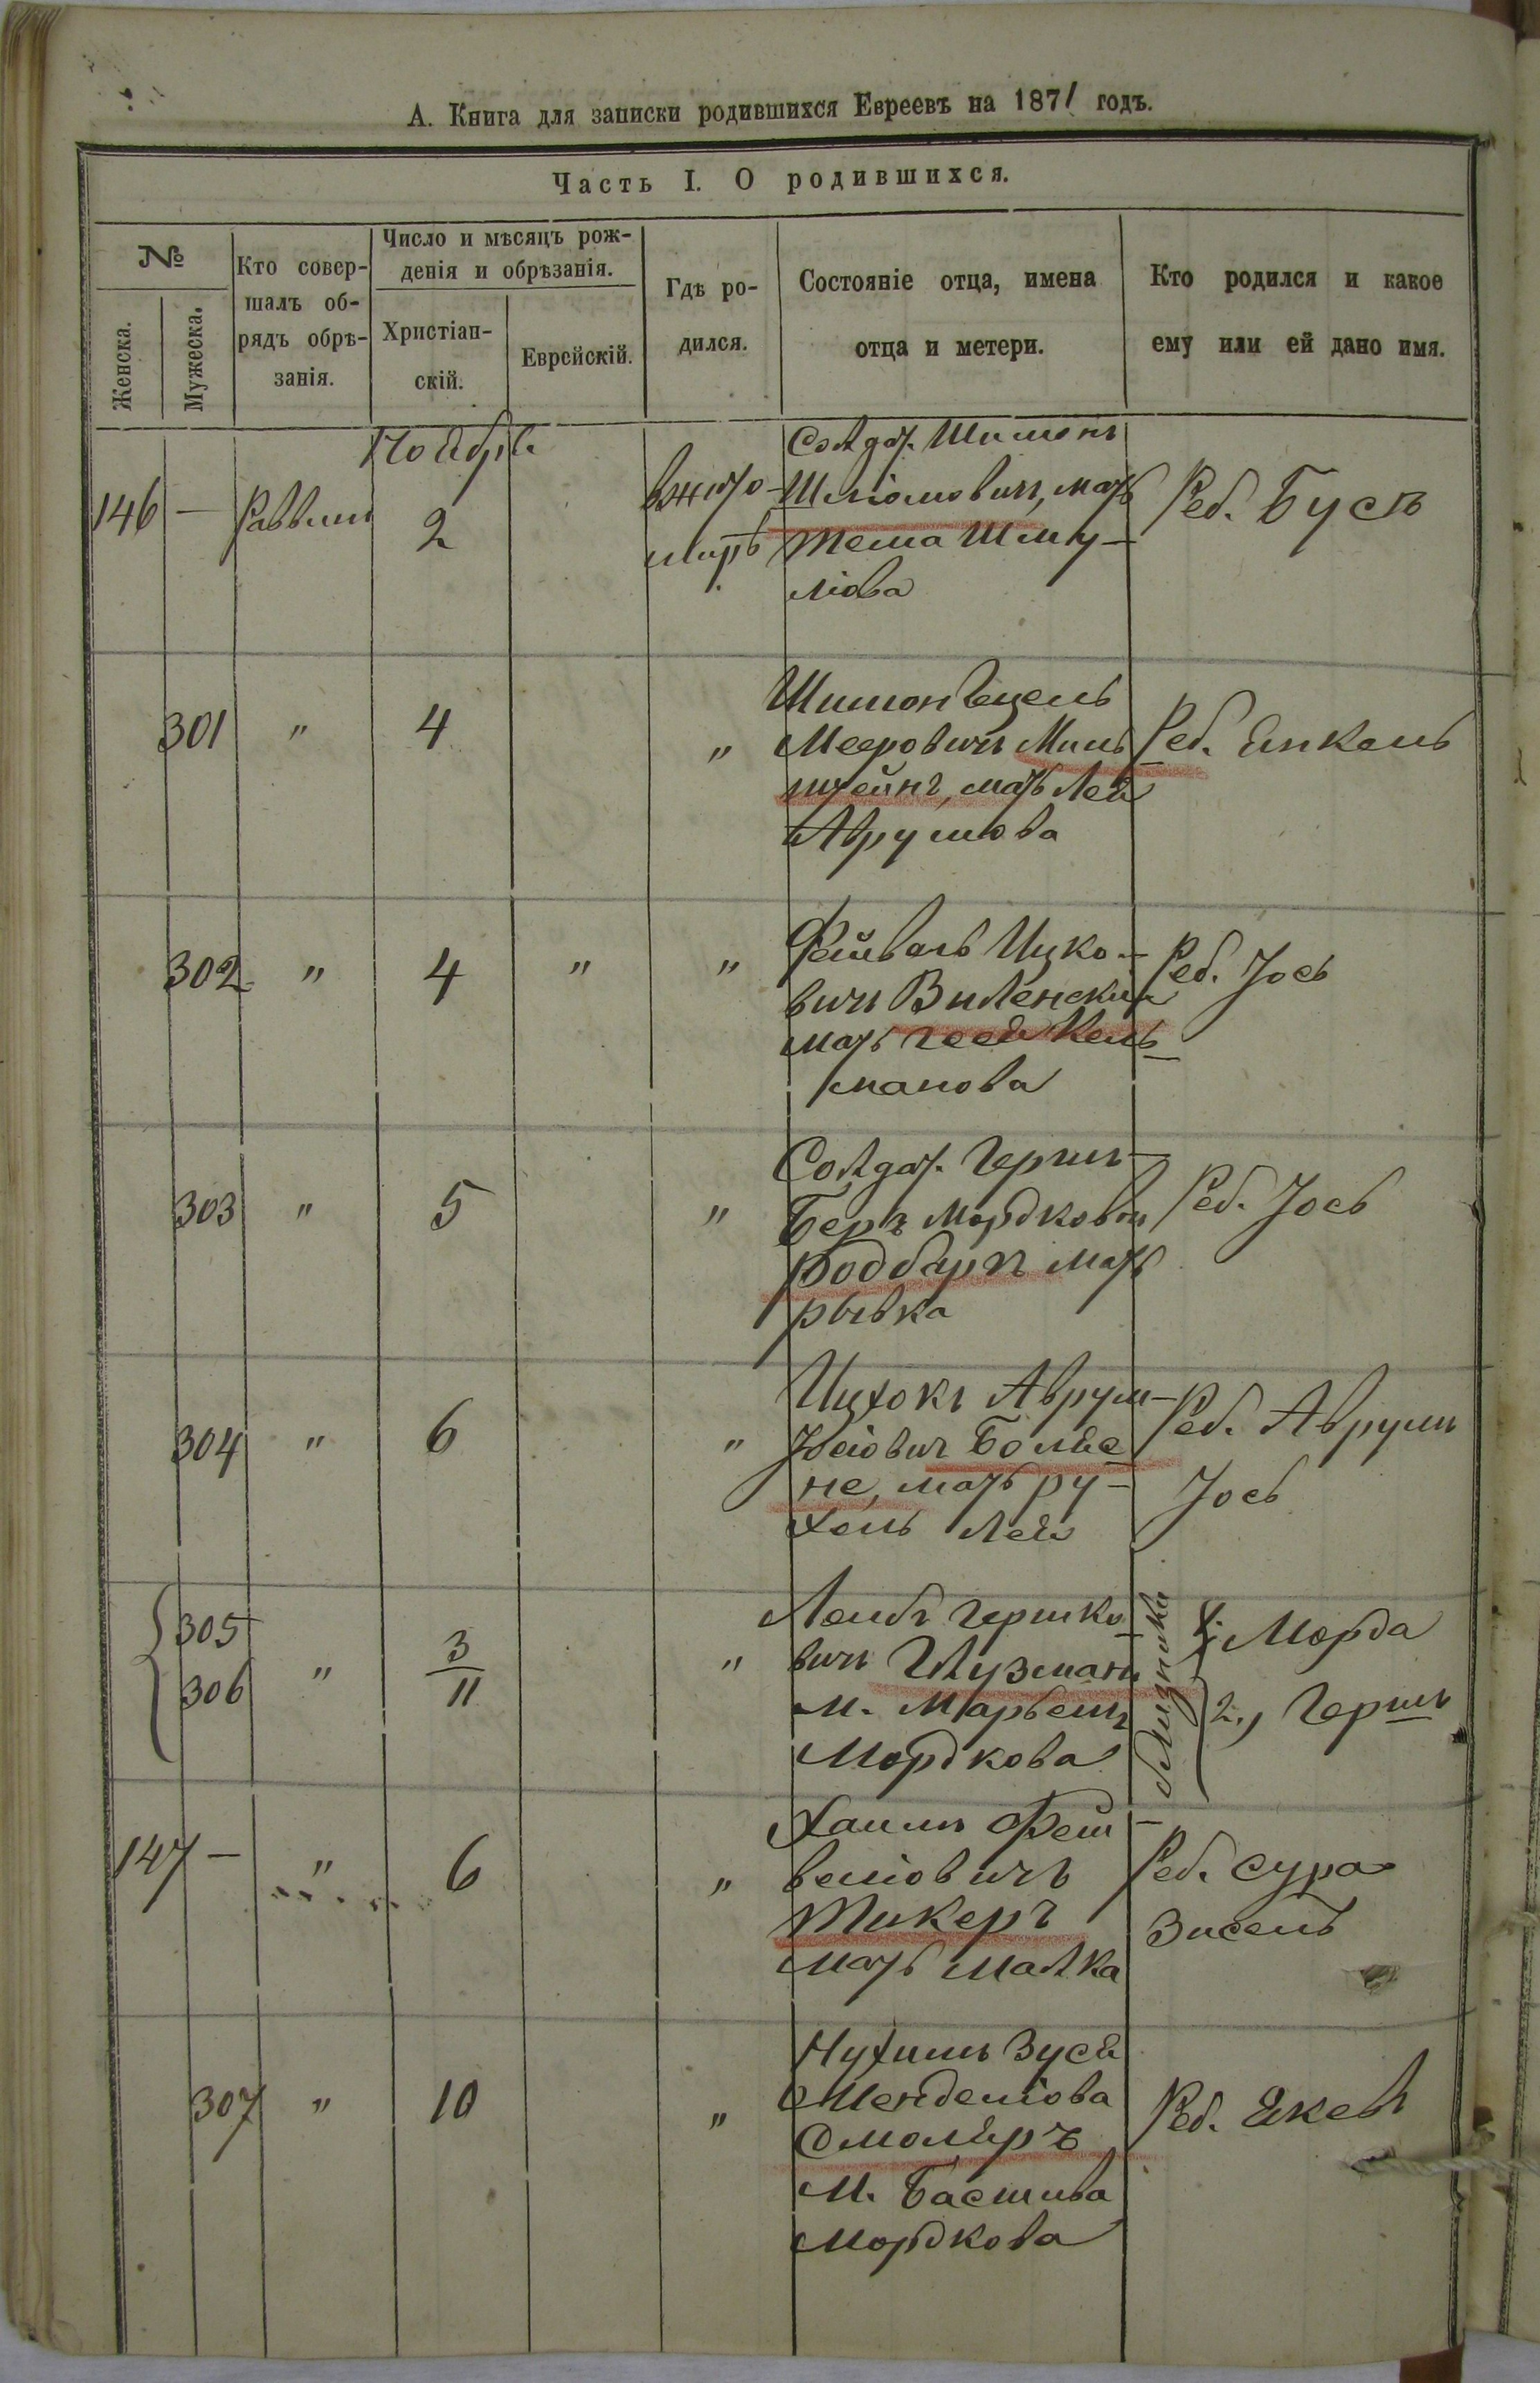 А. Книга для записки родившихся Евреевъ на 1871 годъ.
Часть I. О родившихся.
№
Женска.
Мужеска.
Кто совер-
шалъ об-
рядъ обрѣ-
занія.
Число и мѣсяцъ рож-
денія и обрѣзанія.
Христіан-
скій.
Еврейскій.
Гдѣ ро-
дился.
Состояніе отца, имена
отца и метери.
Кто родился и какое
ему или ей дано имя.
Ноября
146 — Раввинъ 2
въ Жито-
мирѣ
Солдат. Шимонъ
Шліомовичъ, мать
Тема Шму-
ліова
Реб. Буся
301 " 4 "
Шимон Гецель
Мееровичъ Миль
штейнъ, мать Лея
Аврумова
Реб. Янкель
302 " 4 " "
Фейвель Ицко-
вичъ Виленскій
мать Гея Кель-
манова
Реб. Іось
303 " 5 "
Солдат. Герш-
Беръ Мордковичъ
Родбаръ мать
Рывка
Реб. Іось
304 " 6 "
Ицхокъ Аврум-
Іосіович
не, мать Ру-
хель Лея
Реб. Аврумъ
Іось
305
306 " 3
11 "
Лейбъ Гершко
вичъ Глузманъ
М. Марьемъ
Мордкова
близнаки
1. Мордка
2., Гершъ
147 — " 6 "
Хаимъ Фей-
веліовичъ
Тикеръ
мать Малка
Реб. Сура
Зисель
307 " 10 "
Нухимъ Зуся
Менделіова
Смоляръ
М. Басшива
Мордкова
Реб. Якевъ